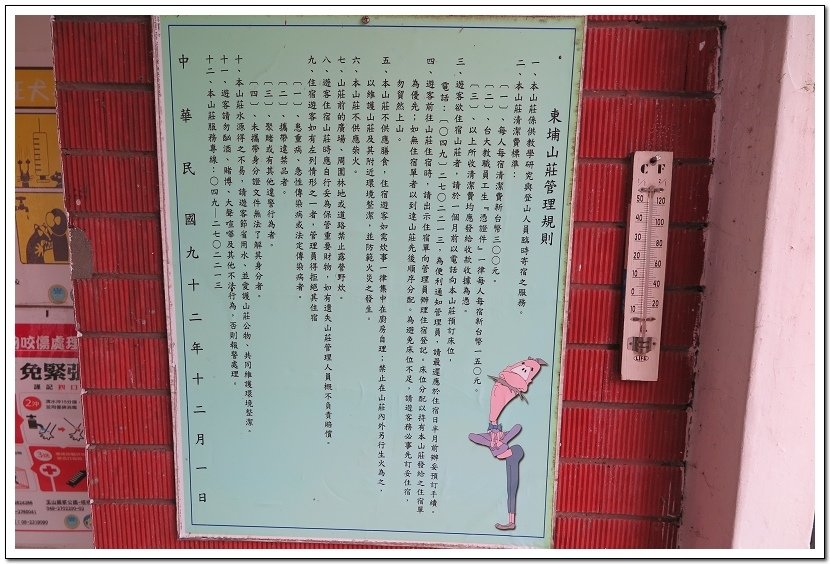 東埔山莊管理規則
一、本山莊係供教學研究與登山人員臨時寄宿之服務。
二、本山莊清潔費標準：
〔一〕、每人每宿清潔費新台幣三〇〇元。
〔二〕、台大教職員工生『憑證件』一律每人每宿新台幣一五〇元。
〔三〕、以上所收清潔費均應發給收款收據為憑。
三、遊客欲住宿山莊者，請於一個月前以電話向本山莊預訂床位，
電話：〔〇四九〕二七〇二二一三，為便利通知管理員，請最遲應於住宿日半月前辦妥預訂手續。
四、遊客前往山莊住宿時，請出示住宿單向管理員辦理住宿登記。床位分配以持有本山莊發給之住宿單
為優先；如無住宿單者以到達山莊先後順序分配。為避免床位不足，請遊客務必事先訂妥住宿，
勿貿然上山。
五、本山莊不供應膳食，住宿遊客如需炊事一律集中在廚房自理；禁止在山莊內外另行生火為之，
以維護山莊及其附近環境整潔，並防範火災之發生。
六、本山莊不供應柴火。
七、山莊前的廣場、周圍林地或道路禁止露營野炊。
八、遊客住宿山莊時應自行妥為保管重要財物，如有遺失山莊管理人員概不負責賠償。
九、住宿遊客如有左列情形之一者，管理員得拒絕其住宿
〔一〕、患重病、急性傳染病或法定傳染病者。
〔二〕、攜帶違禁品者。
〔三〕、聚賭或有其他違警行為者。
〔四〕、未攜帶身分證文件無法了解其身分者。
十、本山莊水源得之不易，請遊客節省用水、並愛護山莊公物、共同維護環境整潔。
十一、遊客請勿酗酒、賭博、大聲喧嘩及其他不法行為，否則報警處理。
十二、本山莊服務專線：〇四九—二七〇二二一三
中華民國九十二年十二月一日
C F
50 120
40 100
30 80
20 60
10 40
0 20
LIFE
犬
咬傷處理
免緊張
謹記 四口
2沖
3送